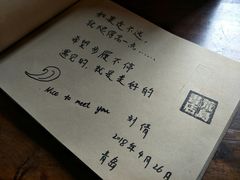 如果走不远，
就吃得香一点……
希望步履不停
遇见的，就是更好的
Nice to meet you
刘倩
2018年4月26日
青岛